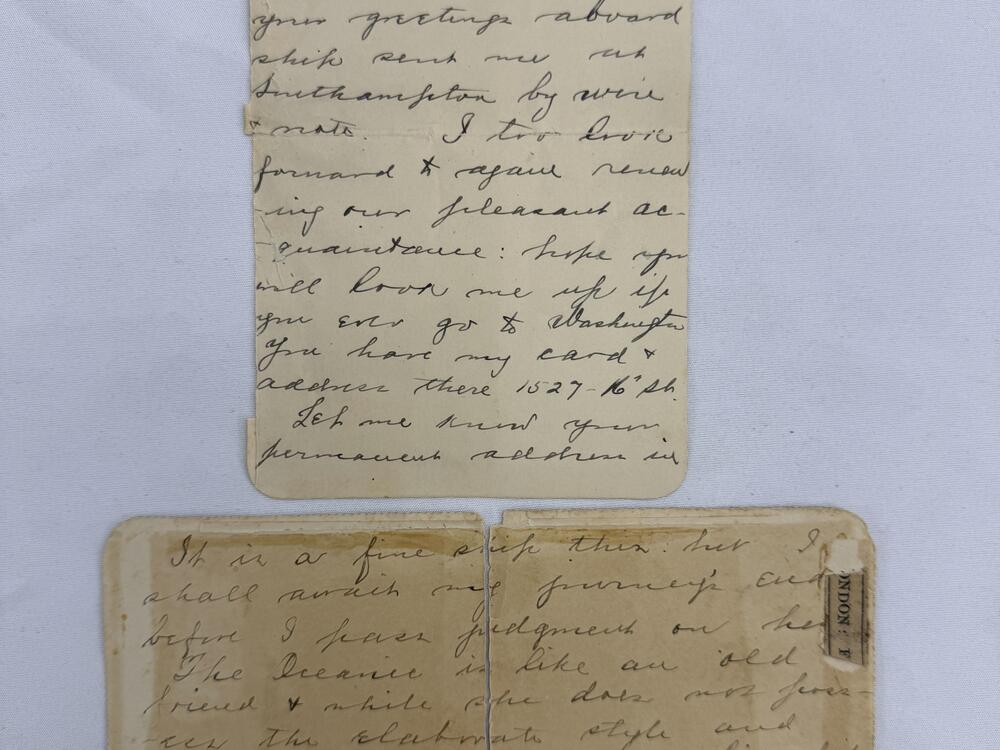 your greetings aboard
ship sent me at
Southampton by wire
& note. I too look
forward to again renew
-ing our pleasant ac-
quaintance: hope you
will look me up if
you ever go to Washington
You have my card &
address there 1527-16" St.
Let me know your
permanent address in
It is a fine ship this: but I
shall await my journey's end
before I pass judgment on her
The Oceanic is like an old
friend & while she does not poss-
-ess the elaborate style and
ONDON: F